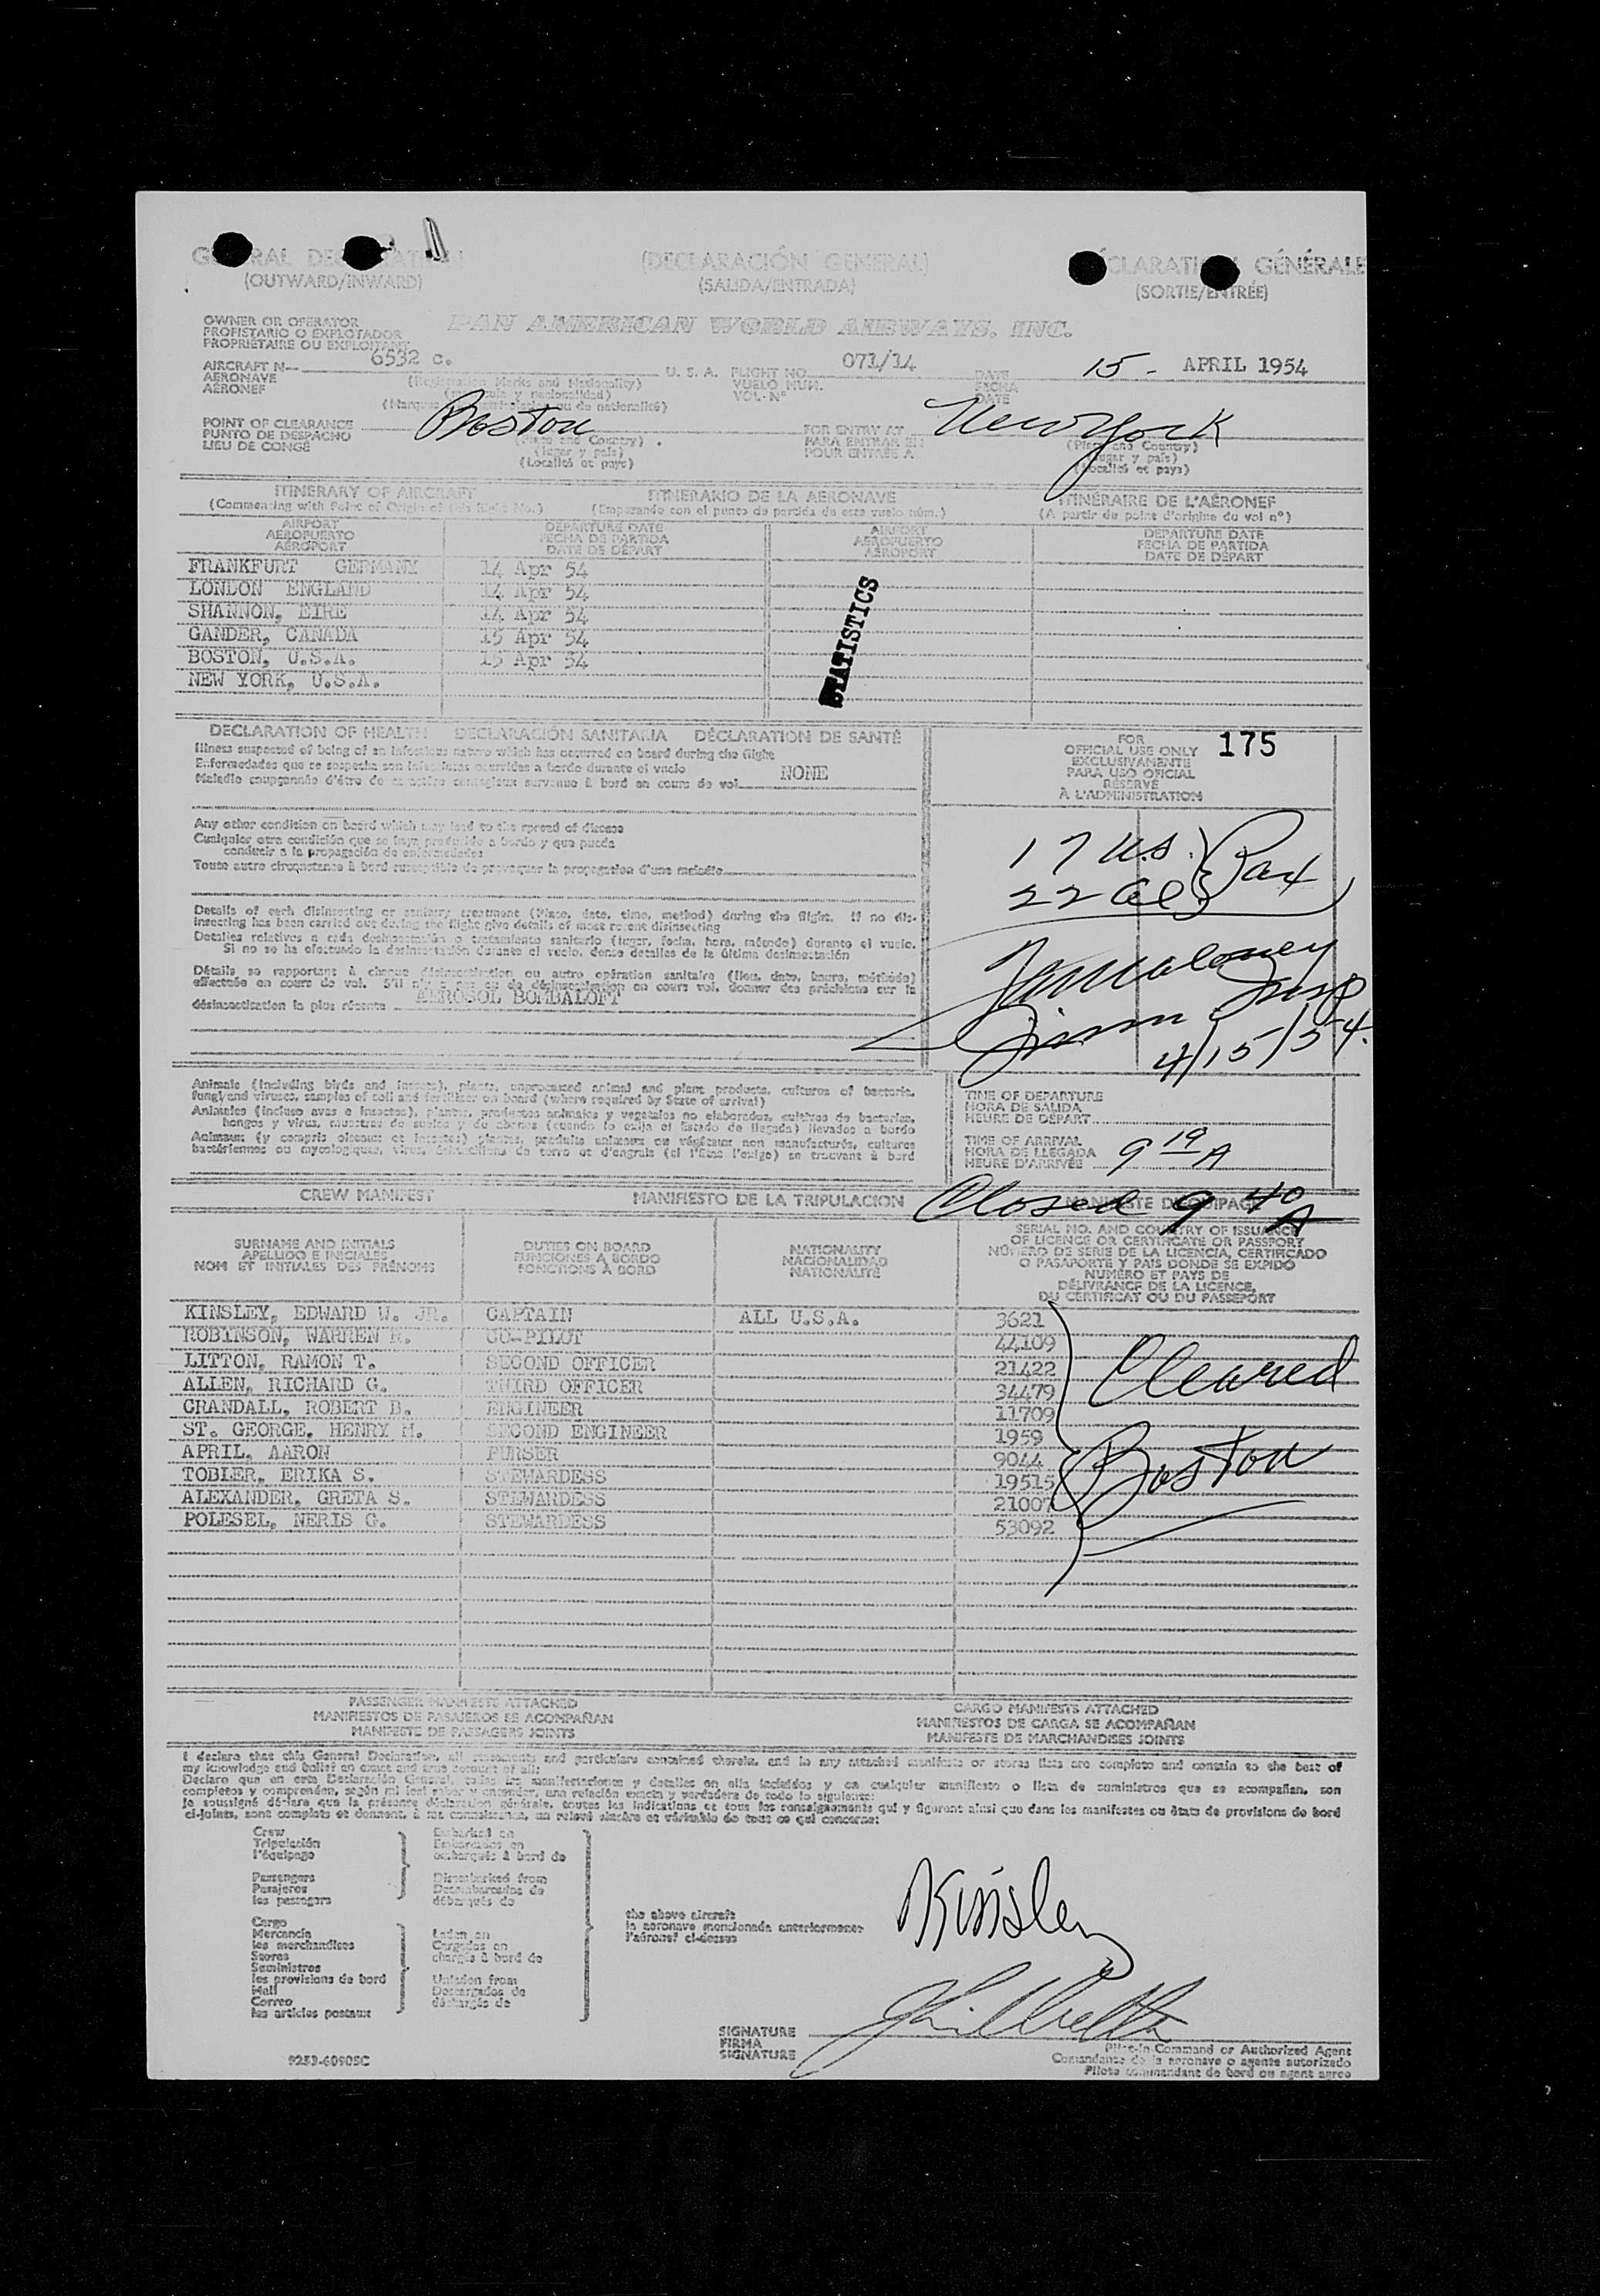 GENERAL DECLARATION (DECLARACIÓN GENERAL) DÉCLARATION GÉNÉRALE
(OUTWARD/INWARD) (SALIDA/ENTRADA) (SORTIE/ENTRÉE)
OWNER OR OPERATOR
PROPISTARIO O EXPLOTADOR
PROPRIÉTAIRE OU EXPLOITANT
PAN AMERICAN WORLD AIRWAYS, INC.
AIRCRAFT N— 6532 C. U. S. A. FLIGHT NO. 071/14 DATE 15 - APRIL 1954
AERONAVE (Registration Marks and Nationality) VUELO NUM. FECHA
AÉRONEF VOL-Nº DATE
POINT OF CLEARANCE Boston FOR ENTRY AT New York
PUNTO DE DESPACHO (Place and Country) PARA ENTRAR EN (Place and Country)
LIEU DE CONGÉ (lugar y país) POUR ENTRÉE A (lugar y país)
(Localité et pays) (Localité et pays)
ITINERARY OF AIRCRAFT ITINERARIO DE LA AERONAVE ITINÉRAIRE DE L'AÉRONEF
(Commencing with Point of Origin of this flight No.) (Empezando con el punto de partida de este vuelo núm.) (A partir du point d'origine du vol nº)
AIRPORT DEPARTURE DATE AIRPORT DEPARTURE DATE
AEROPUERTO FECHA DE PARTIDA AEROPUERTO FECHA DE PARTIDA
AÉROPORT DATE DE DÉPART AÉROPORT DATE DE DÉPART
FRANKFURT GERMANY 14 Apr 54
LONDON ENGLAND 14 Apr 54
SHANNON, EIRE 14 Apr 54
GANDER, CANADA 15 Apr 54
BOSTON, U.S.A. 15 Apr 54
NEW YORK, U.S.A.
STATISTICS
DECLARATION OF HEALTH DECLARACIÓN SANITARIA DÉCLARATION DE SANTÉ
Illness suspected of being of an infectious nature which has occurred on board during the flight
Enfermedades que se sospecha son infecciosas ocurridas a bordo durante el vuelo NONE
Maladie coupçonnée d'être de caractère contagieux survenue à bord en cours de vol
Any other condition on board which may lead to the spread of disease
Cualquier otra condición que se haya producido a bordo y que pueda
conducir a la propagación de enfermedades
Toute autre circonstance à bord susceptible de provoquer la propagation d'une maladie
Details of each disinsecting or sanitary treatment (Place, date, time, method) during the flight. If no dis-
insecting has been carried out during the flight give details of most recent disinsecting
Detalles relativos a cada desinsectación o tratamiento sanitario (lugar, fecha, hora, método) durante el vuelo.
Si no se ha efectuado la desinsectación durante el vuelo, dense detalles de la última desinsectación
Détails se rapportant à chaque désinsectisation ou autre opération sanitaire (lieu, date, heure, méthode)
effectuée en cours de vol. S'il n'y a pas eu de désinsectisation en cours vol, donner des précisions sur la
désinsectisation la plus récente AEROSOL BOMBALOFT
FOR
OFFICIAL USE ONLY 175
EXCLUSIVAMENTE
PARA USO OFICIAL
RÉSERVÉ
À L'ADMINISTRATION
17 U.S.
22 Al Pax
Maloney
Insp
Imm
4/15/54.
Animals (including birds and insects), plants, unprocessed animal and plant products, cultures of bacteria,
fungi and viruses, samples of soil and fertilizer on board (where required by State of arrival)
Animales (incluso aves e insectos), plantas, productos animales y vegetales no elaborados, cultivos de bacterias,
hongos y virus, muestras de suelos y de abonos (cuando lo exija el Estado de llegada) llevados a bordo
Animaux (y compris oiseaux et insectes) plantes, produits animaux ou végétaux non manufacturés, cultures
bactériennes ou mycologiques, virus, échantillons de terre et d'engrais (si l'État l'exige) se trouvant à bord
TIME OF DEPARTURE
HORA DE SALIDA
HEURE DE DÉPART
TIME OF ARRIVAL
HORA DE LLEGADA
HEURE D'ARRIVÉE 9 19 A
CREW MANIFEST MANIFIESTO DE LA TRIPULACION MANIFESTE D'ÉQUIPAGE
Closed 9 40 A
SURNAME AND INITIALS DUTIES ON BOARD NATIONALITY
APELLIDO E INICIALES FUNCIONES A BORDO NACIONALIDAD
NOM ET INITIALES DES PRÉNOMS FONCTIONS À BORD NATIONALITÉ
SERIAL NO. AND COUNTRY OF ISSUANCE
OF LICENCE OR CERTIFICATE OR PASSPORT
NÚMERO DE SERIE DE LA LICENCIA, CERTIFICADO
O PASAPORTE Y PAIS DONDE SE EXPIDÓ
NUMÉRO ET PAYS DE
DÉLIVRANCE DE LA LICENCE,
DU CERTIFICAT OU DU PASSEPORT
KINSLEY, EDWARD W. JR. CAPTAIN ALL U.S.A. 3621
ROBINSON, WARREN R. CO-PILOT 44109
LITTON, RAMON T. SECOND OFFICER 21422
ALLEN, RICHARD G. THIRD OFFICER 34479
CRANDALL, ROBERT B. ENGINEER 11709
ST. GEORGE, HENRY M. SECOND ENGINEER 1959
APRIL, AARON PURSER 9044
TOBLER, ERIKA S. STEWARDESS 19515
ALEXANDER, GRETA S. STEWARDESS 21007
POLESEL, NERIS G. STEWARDESS 53092
Cleared
Boston
PASSENGER MANIFESTS ATTACHED CARGO MANIFESTS ATTACHED
MANIFIESTOS DE PASAJEROS SE ACOMPAÑAN MANIFIESTOS DE CARGA SE ACOMPAÑAN
MANIFESTE DE PASSAGERS JOINTS MANIFESTE DE MARCHANDISES JOINTS
I declare that this General Declaration, all statements and particulars contained therein, and in any attached manifests or stores lists are complete and contain to the best of
my knowledge and belief an exact and true account of all:
Declaro que en esta Declaración General, todas las manifestaciones y detalles en ella incluidos y en cualquier manifiesto o lista de suministros que se acompañan, son
completos y comprenden, según mi leal saber y entender, una relación exacta y verdadera de todo lo siguiente:
Je soussigné déclare que la présente déclaration générale, toutes les indications et tous les renseignements qui y figurent ainsi que dans les manifestes ou états de provisions de bord
ci-joints, sont complets et donnent, à ma connaissance, un relevé sincère et véritable de tout ce qui concerne:
Crew Embarked on
Tripulación Embarcados en
l'équipage embarqués à bord de
Passengers Disembarked from
Pasajeros Desembarcados de
les passagers débarqués de
Cargo
Mercancía Laden on
les merchandises Cargados en
Stores chargés à bord de
Suministros
les provisions de bord Unladen from
Mail Descargados de
Correo déchargés de
les articles postaux
the above aircraft
la aeronave mencionada anteriormente
l'aéronef ci-dessus
Kinsley
SIGNATURE
FIRMA
SIGNATURE
Pilot-in-Command or Authorized Agent
Comandante de la aeronave o agente autorizado
Pilote commandant de bord ou agent agréé
9253-60905C